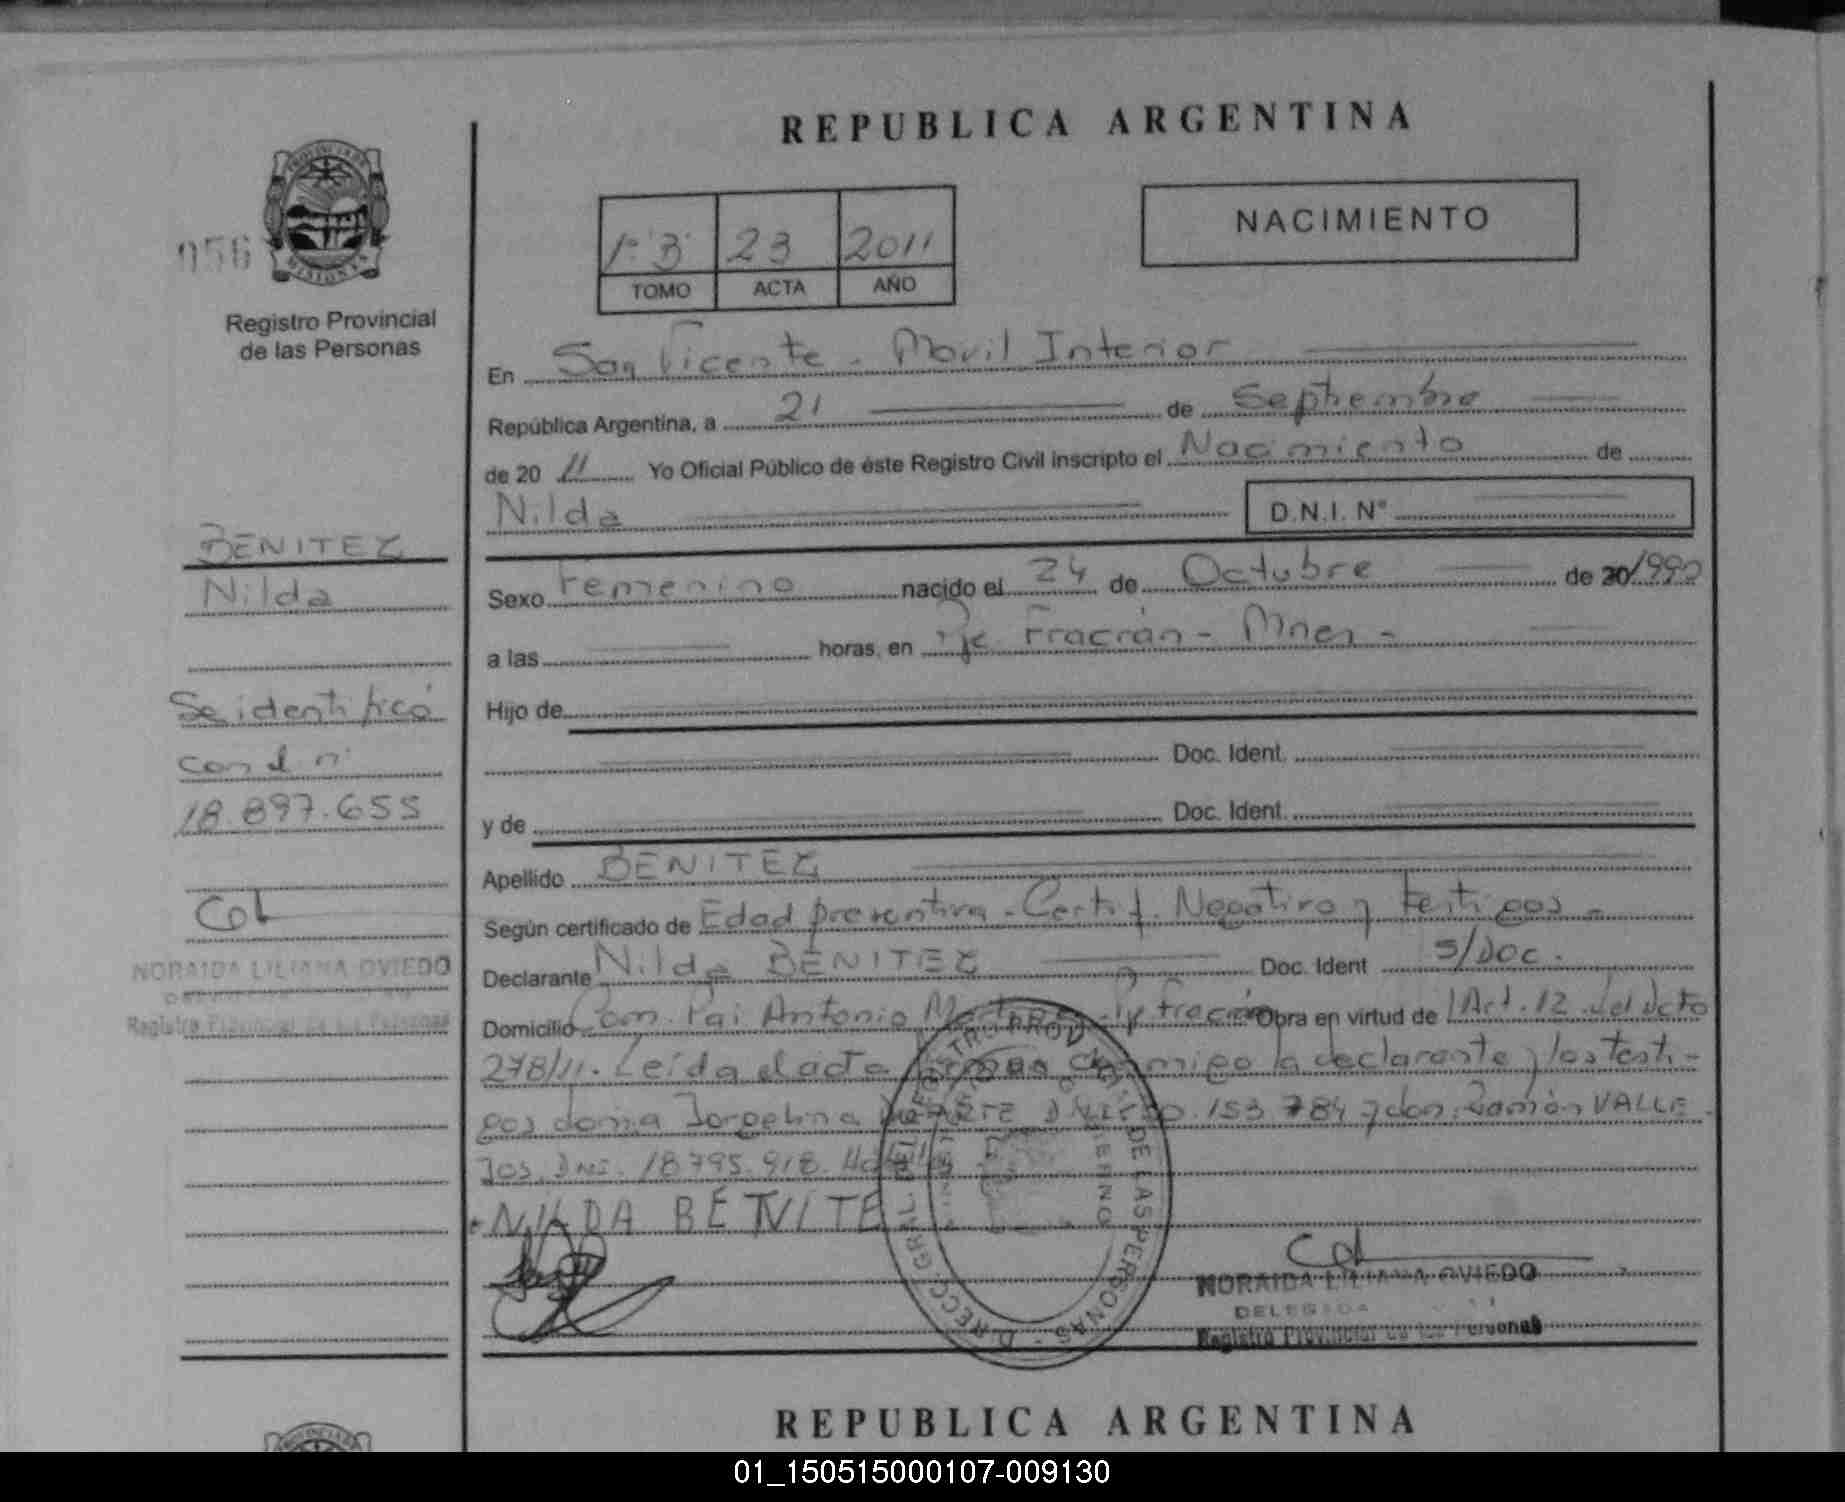 REPUBLICA ARGENTINA
NACIMIENTO
1º B 23 2011
TOMO ACTA AÑO
056
PROVINCIA DE
MISIONES
Registro Provincial
de las Personas
En San Vicente - Movil Interior
República Argentina, a 21 de Septiembre
de 20 11 Yo Oficial Público de éste Registro Civil inscripto el Nacimiento de
Nilda D.N.I. Nº
BENITEZ
Nilda
Se identificó
con el nº
18.897.655
NORAIDA LILIANA OVIEDO
Registro Provincial de las Personas
Sexo Femenino nacido el 24 de Octubre de 20/1990
a las horas, en Pje Fracrán - Mnes -
Hijo de
Doc. Ident.
y de Doc. Ident.
Apellido BENITEZ
Según certificado de Edad preventiva - Certif. Negativo y testigos -
Declarante Nilda BENITEZ Doc. Ident S/Doc.
Domicilio Com. Pai Antonio Pje Fracrán Obra en virtud de Art. 12 del Dcto
278/11. Leída el acta firman conmigo la declarante y los testi-
gos doña Jorgelina DNI 153.784 y don Ramón VALLE
jos. DNI. 18.795.918.
NILDA BENITE
DIRECC. GRAL. DEL REGISTRO PROV. DE LAS PERSONAS
NORAIDA LILIANA OVIEDO
DELEGADA
Registro Provincial de las Personas
REPUBLICA ARGENTINA
01_150515000107-009130